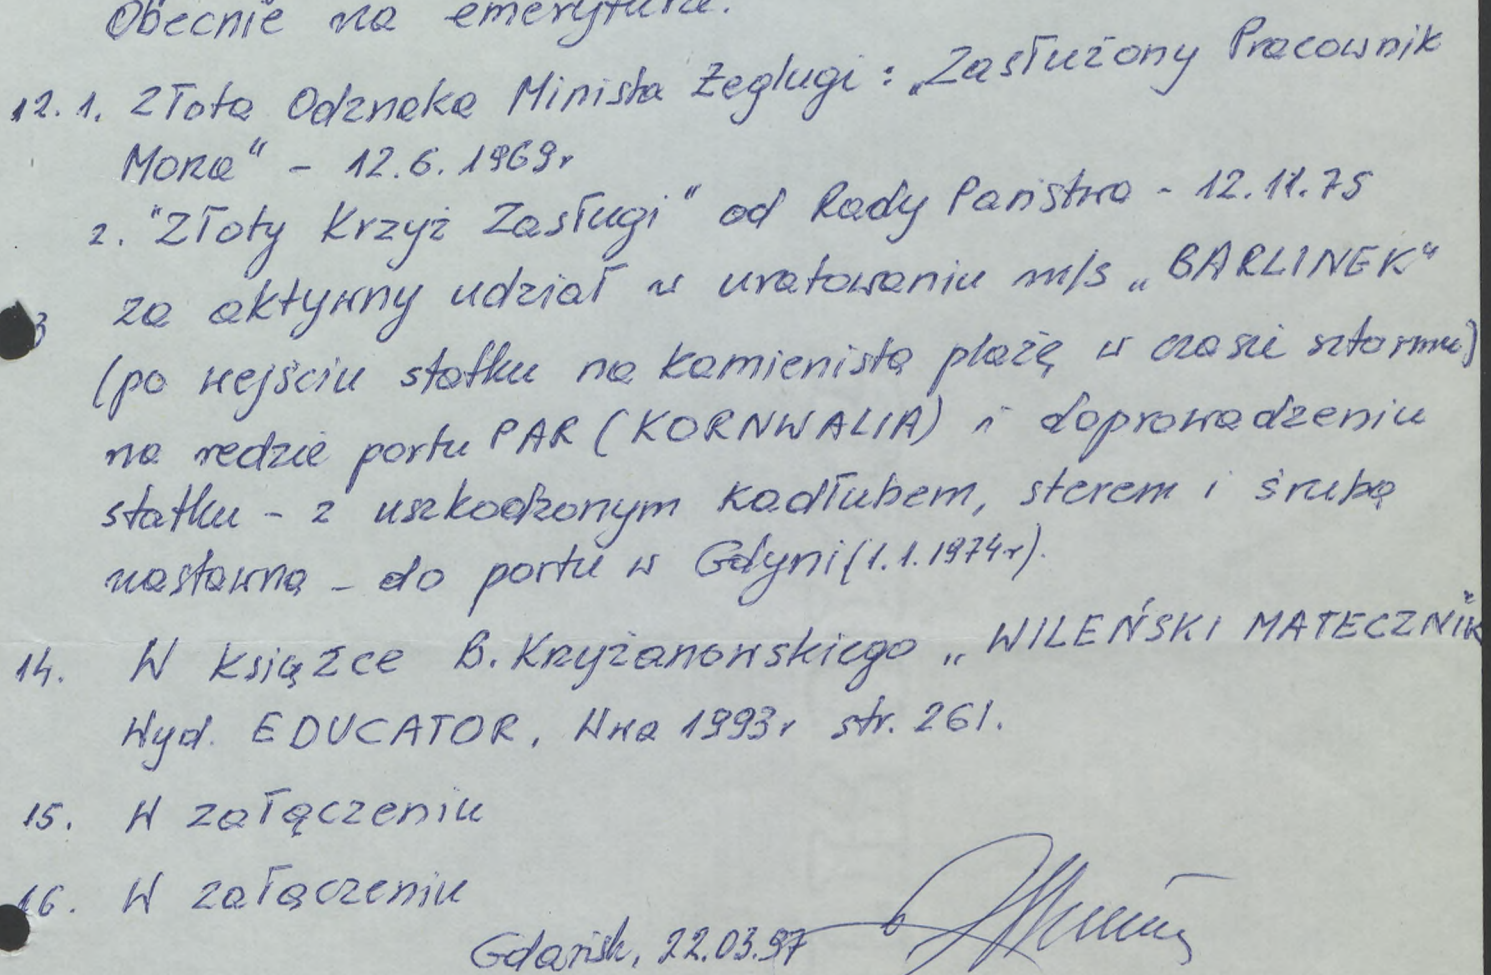 Obecnie na emeryturze.
12.1. Złota Odznaka Ministra Żeglugi: „Zasłużony Pracownik
Morza" - 12.6.1969r
2. "Złoty Krzyż Zasługi" od Rady Państwa - 12.11.75
za aktywny udział w uratowaniu m/s „BARLINEK"
(po wejściu statku na kamienistą plażę w czasie sztormu)
na redzie portu PAR (KORNWALIA) i doprowadzeniu
statku - z uszkodzonym kadłubem, sterem i śrubą
nastawną - do portu w Gdyni (1.1.1974r).
14. W książce B. Krzyżanowskiego „WILEŃSKI MATECZNIK
Wyd. EDUCATOR, Wwa 1993r str. 261.
15. W załączeniu
16. W załączeniu
Gdańsk, 22.03.97